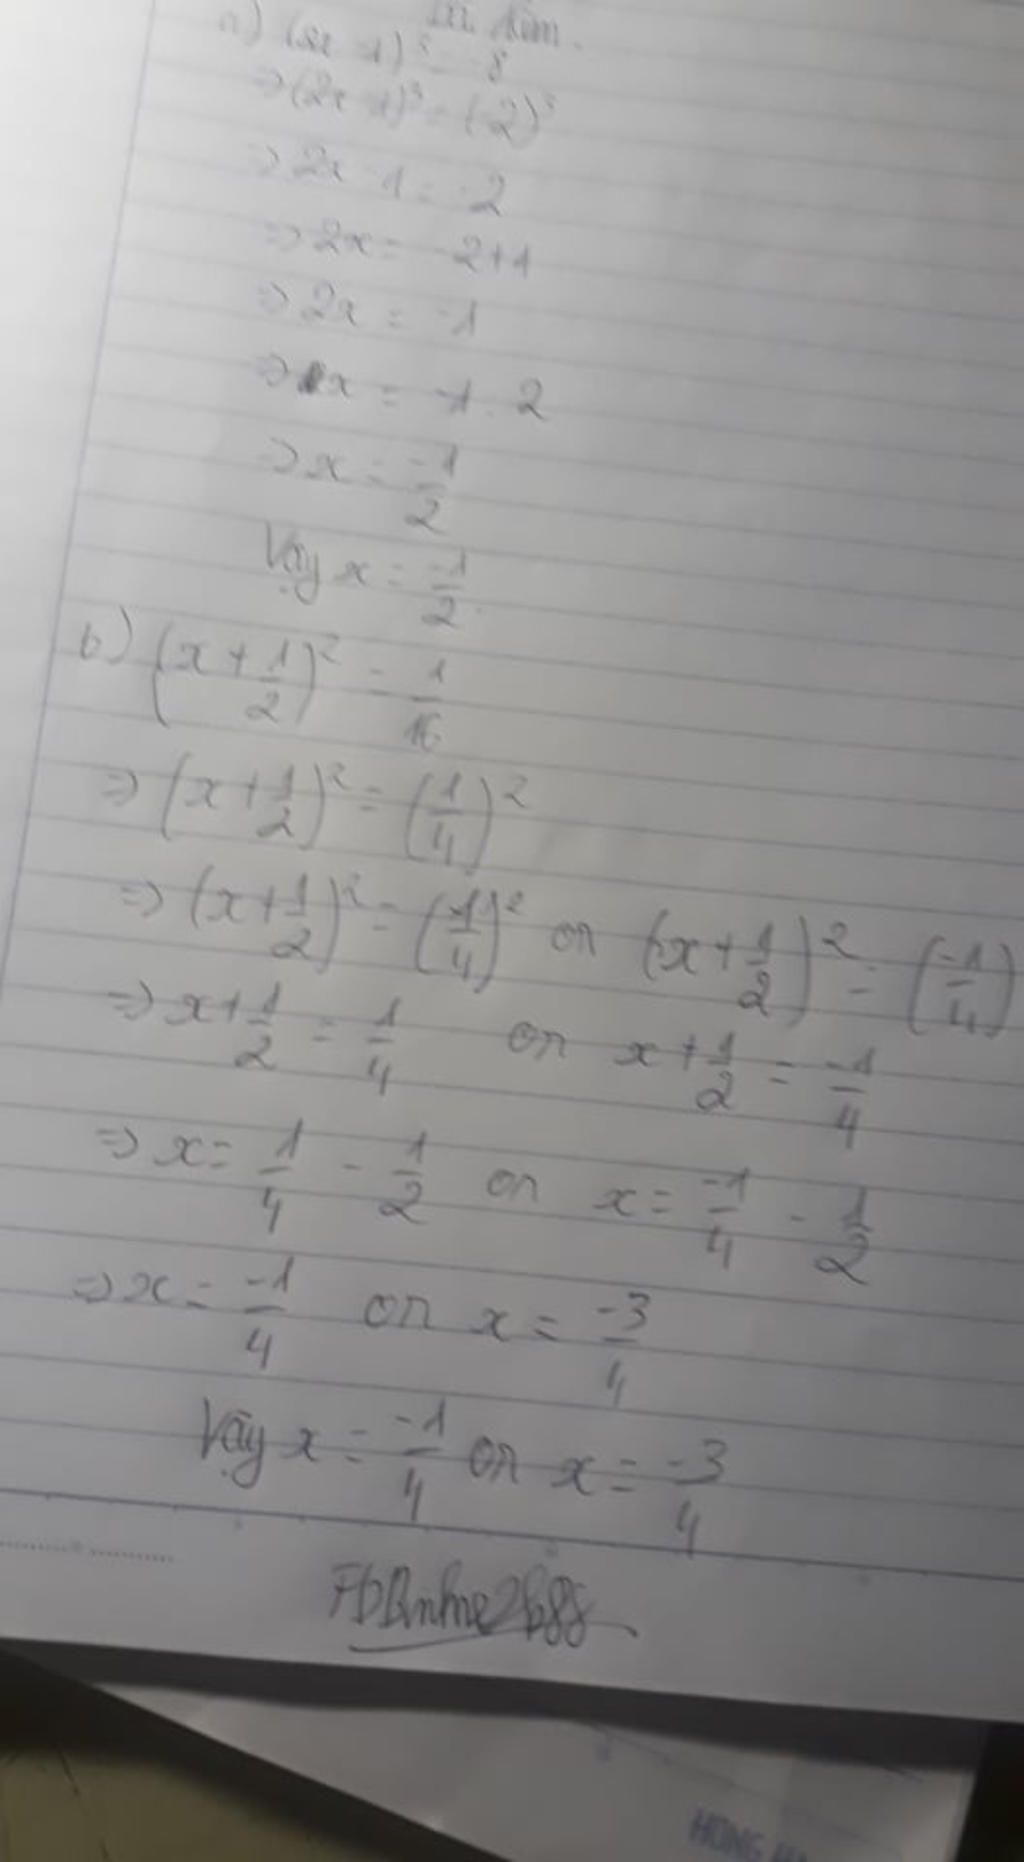 a) (2x - 1)³ = -8
=> (2x - 1)³ = (-2)³
=> 2x - 1 = -2
=> 2x = -2+1
=> 2x = -1
=> x = -1 . 2
=> x = -1/2
Vậy x = -1/2.
b) (x + 1/2)² = 1/16
=> (x + 1/2)² = (1/4)²
=> (x + 1/2)² = (1/4)² or (x + 1/2)² = (-1/4)
=> x + 1/2 = 1/4 or x + 1/2 = -1/4
=> x = 1/4 - 1/2 or x = -1/4 - 1/2
=> x = -1/4 or x = -3/4
Vậy x = -1/4 or x = -3/4
HONG